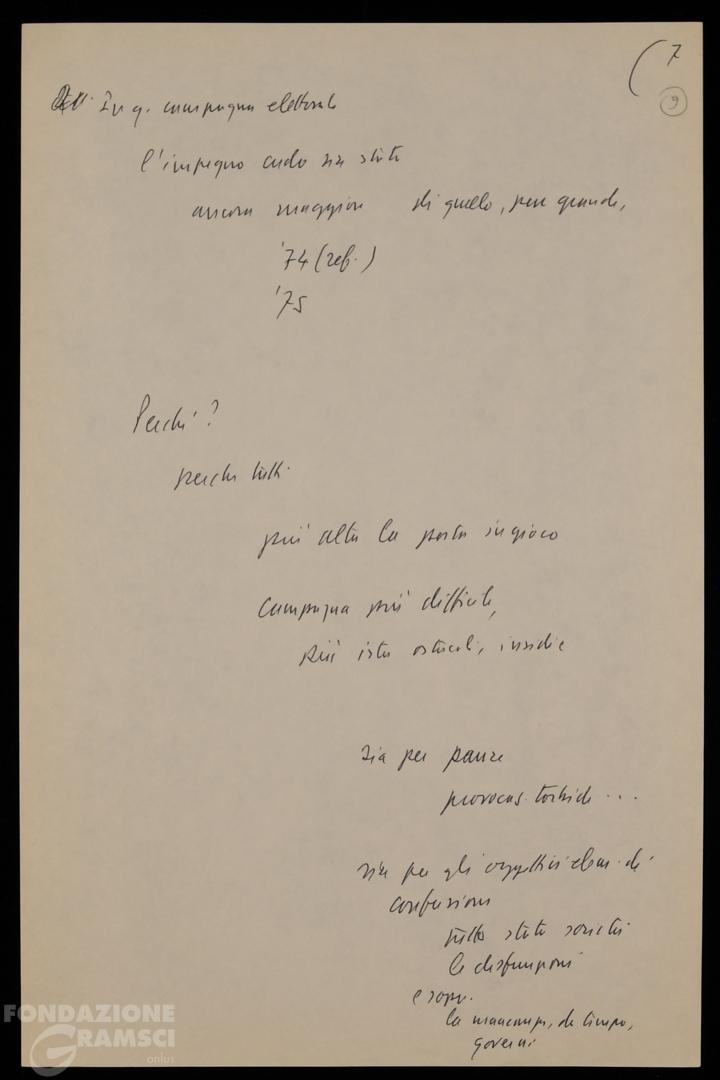 7
9
In q. campagna elettorale
l'impegno credo sia stato
ancora maggiore di quello, pur grande,
'74 (ref.)
'75
Perché?
perché tutti
più alta la posta in gioco
Campagna più difficile,
più ostacoli, insidie
sia per paure
provocaz. torbide ...
sia per gli oggettivi elem. di
confusione
sullo stato società
le disfunzioni
e sopr.
la mancanza, da tempo,
governi
FONDAZIONE
GRAMSCI
onlus